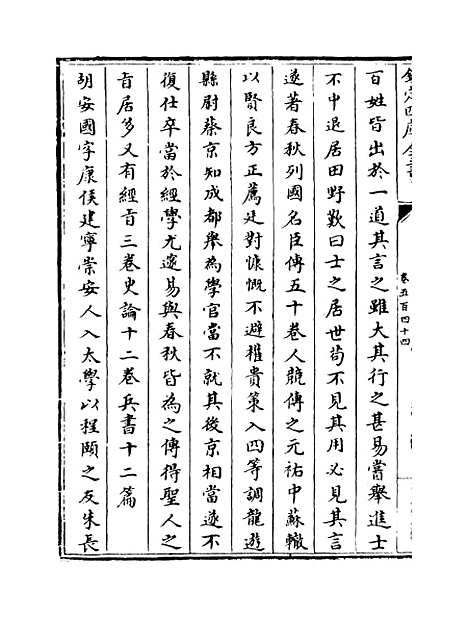 欽定四庫全書
卷五百四十四
百姓皆出於一道其言之雖大其行之甚易嘗舉進士
不中退居田野歎曰士之居世苟不見其用必見其言
遂著春秋列國名臣傳五十卷人競傳之元祐中蘇轍
以賢良方正薦廷對慷慨不避權貴策入四等調龍遊
縣尉蔡京知成都舉為學官當不就其後京相當遂不
復仕卒當於經學尤邃易與春秋皆為之傳得聖人之
旨居多又有經旨三卷史論十二卷兵書十二篇
胡安國字康侯建寧崇安人入太學以程頤之友朱長